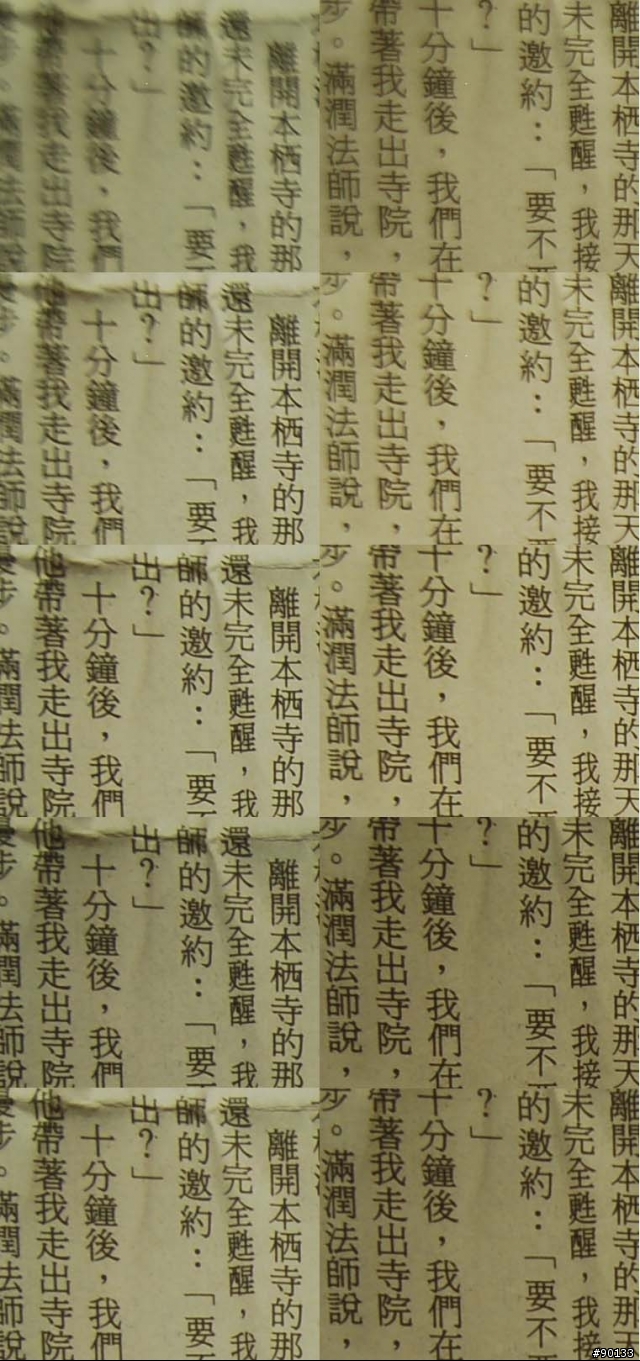 離開本栖寺的那
還未完全甦醒，我
師的邀約：「要
出？」
十分鐘後，我們
他帶著我走出寺院
步。滿潤法師說
離開本栖寺的那天
未完全甦醒，我接
的邀約：「要不
？」
十分鐘後，我們在
帶著我走出寺院，
步。滿潤法師說，
離開本栖寺的那
還未完全甦醒，我
師的邀約：「要
出？」
十分鐘後，我們
他帶著我走出寺院
步。滿潤法師說
離開本栖寺的那天
未完全甦醒，我接
的邀約：「要不
？」
十分鐘後，我們在
帶著我走出寺院，
步。滿潤法師說，
離開本栖寺的那
還未完全甦醒，我
師的邀約：「要
出？」
十分鐘後，我們
他帶著我走出寺院
步。滿潤法師說
離開本栖寺的那天
未完全甦醒，我接
的邀約：「要不
？」
十分鐘後，我們在
帶著我走出寺院，
步。滿潤法師說，
離開本栖寺的那
還未完全甦醒，我
師的邀約：「要
出？」
十分鐘後，我們
他帶著我走出寺院
步。滿潤法師說
離開本栖寺的那天
未完全甦醒，我接
的邀約：「要不
？」
十分鐘後，我們在
帶著我走出寺院，
步。滿潤法師說，
離開本栖寺的那
還未完全甦醒，我
師的邀約：「要
出？」
十分鐘後，我們
他帶著我走出寺院
步。滿潤法師說
離開本栖寺的那天
未完全甦醒，我接
的邀約：「要不
？」
十分鐘後，我們在
帶著我走出寺院，
步。滿潤法師說，
#90133